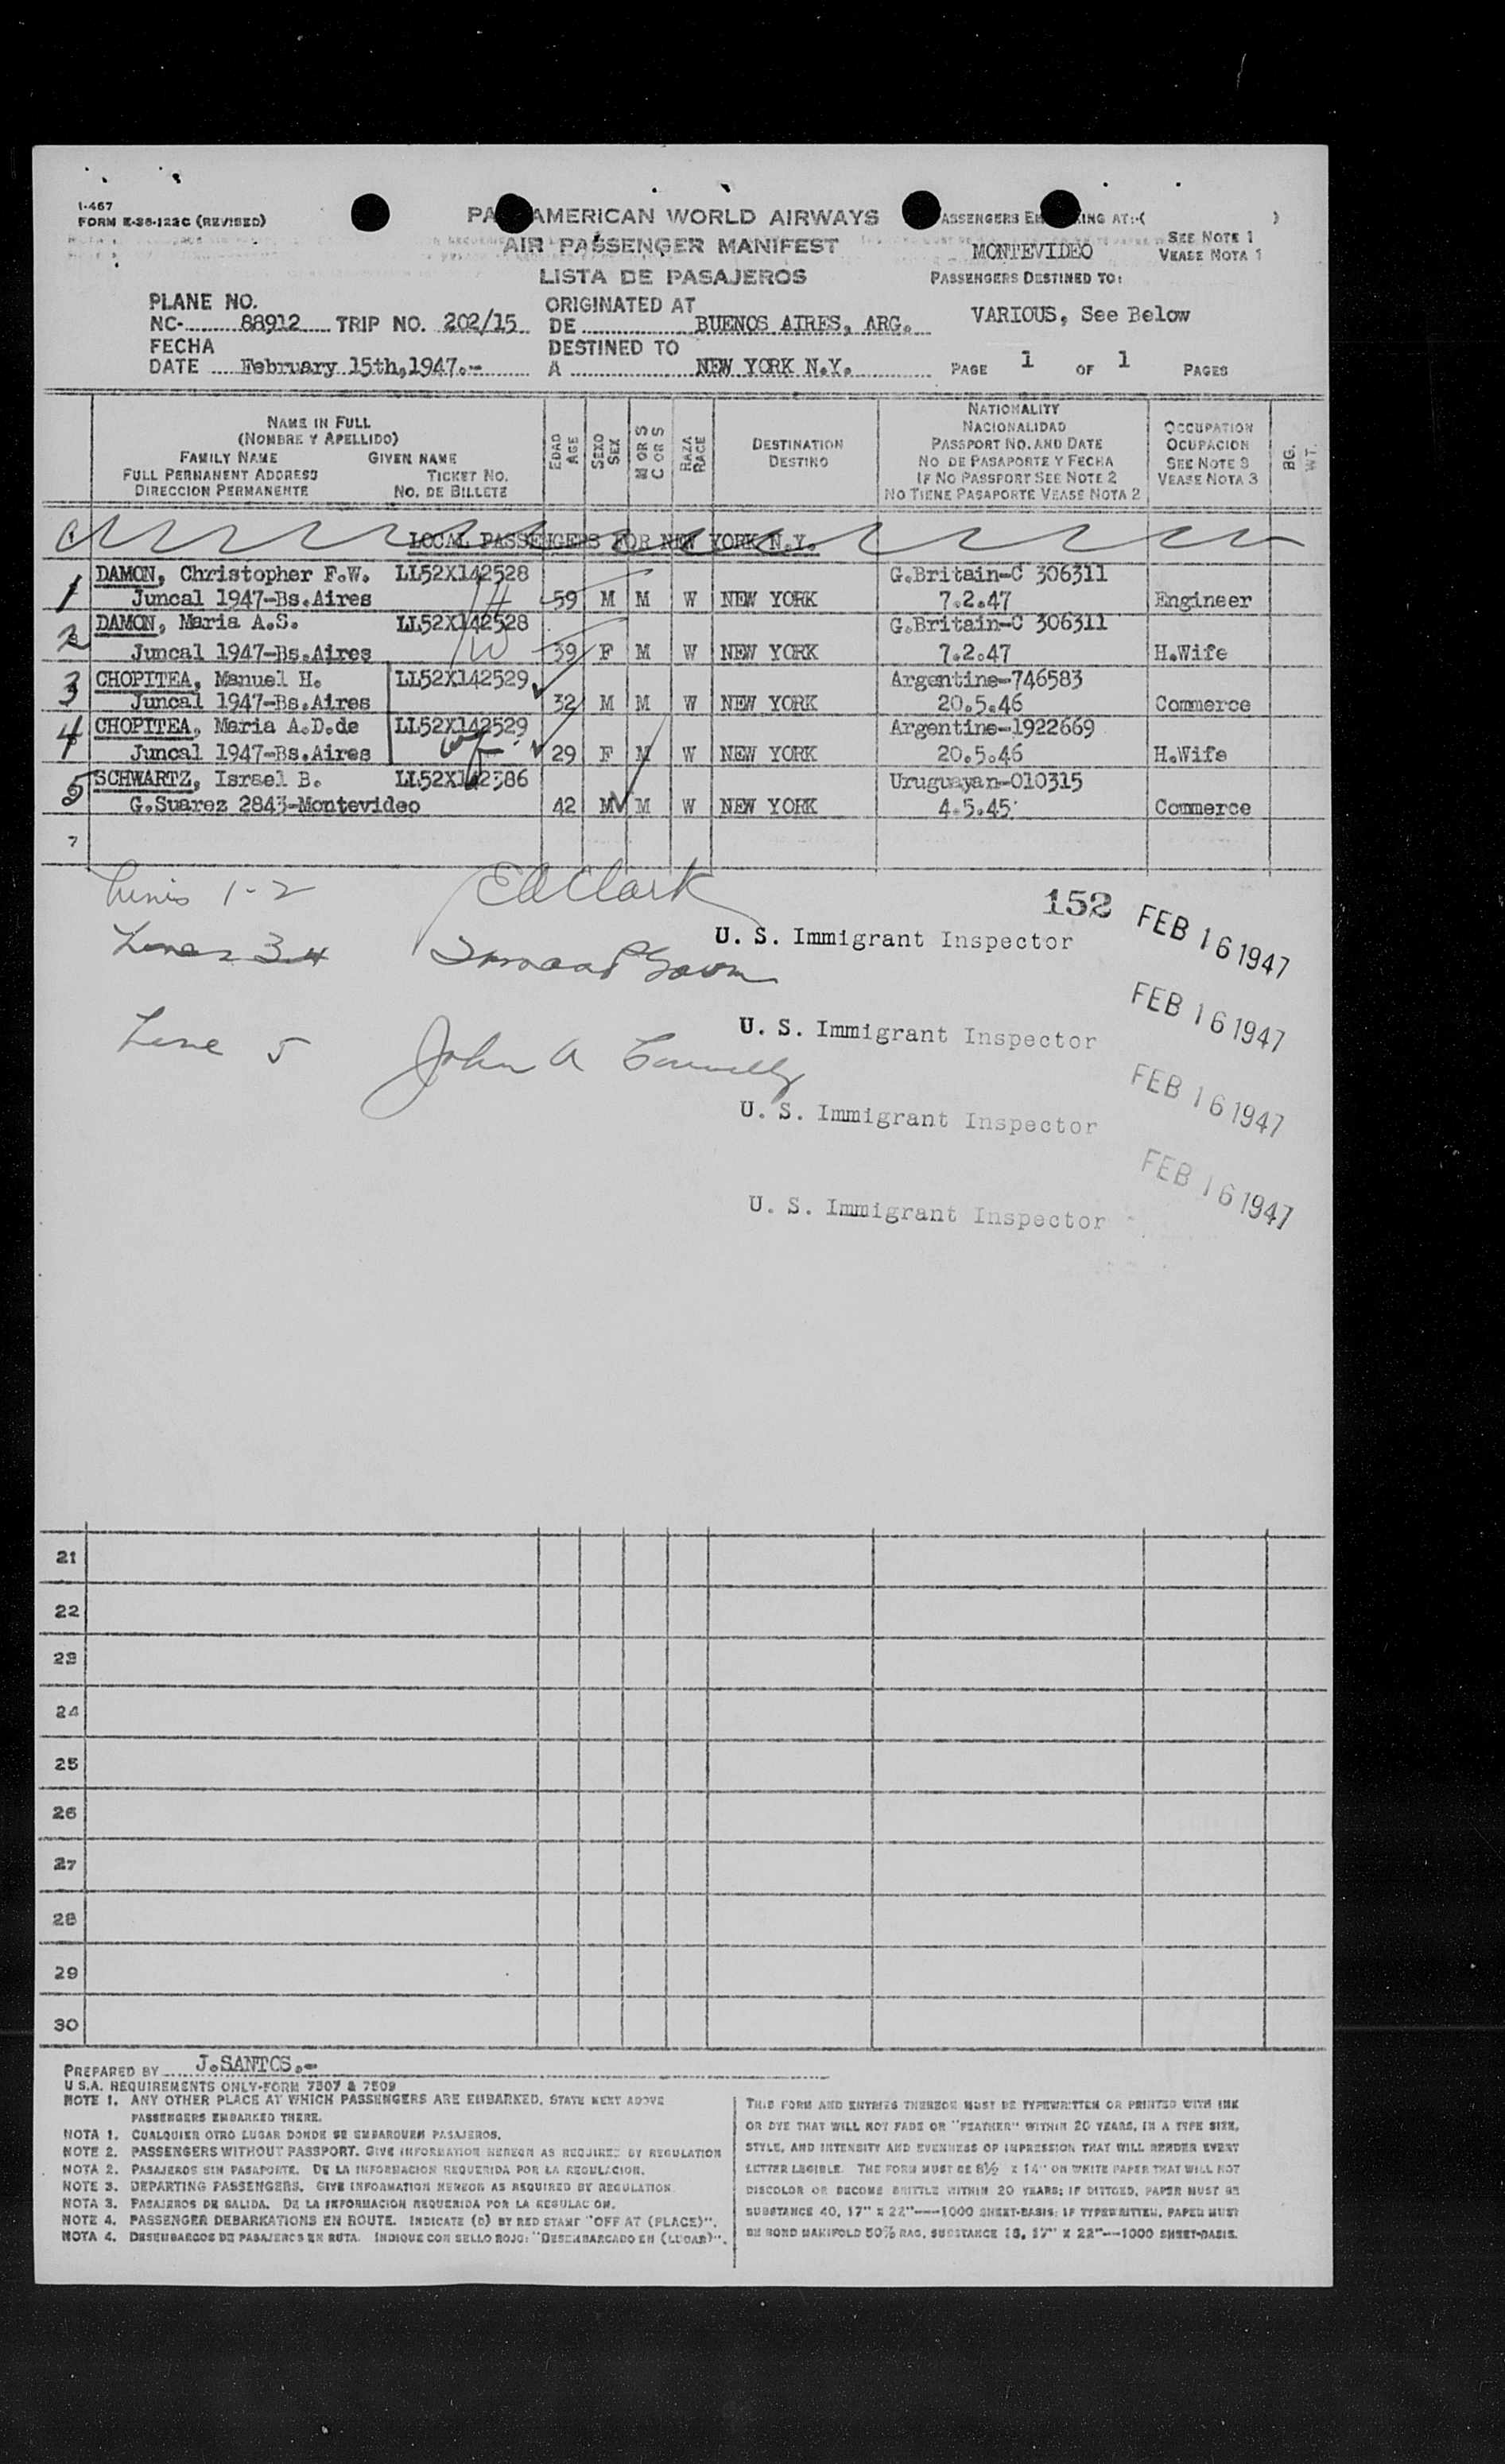 I-467
FORM E-36-122C (REVISED)
AMERICAN WORLD AIRWAYS
AIR PASSENGER MANIFEST
LISTA DE PASAJEROS
MONTEVIDEO
SEE NOTE 1
VEASE NOTA 1
PASSENGERS DESTINED TO:
VARIOUS, See Below
PLANE NO.
NC- 88912 TRIP NO. 202/15
ORIGINATED AT
DE BUENOS AIRES, ARG.
FECHA
DATE February 15th,1947.-
DESTINED TO
A NEW YORK N.Y.
PAGE 1 OF 1 PAGES
NAME IN FULL
(NOMBRE Y APELLIDO)
FAMILY NAME GIVEN NAME
FULL PERMANENT ADDRESS TICKET NO.
DIRECCION PERMANENTE NO. DE BILLETE
EDAD
AGE
SEXO
SEX
M OR S
C OR S
RAZA
RACE
DESTINATION
DESTINO
NATIONALITY
NACIONALIDAD
PASSPORT NO. AND DATE
NO DE PASAPORTE Y FECHA
IF NO PASSPORT SEE NOTE 2
NO TIENE PASAPORTE VEASE NOTA 2
OCCUPATION
OCUPACION
SEE NOTE 3
VEASE NOTA 3
BG.
WT.
LOCAL PASSENGERS FOR NEW YORK N.Y.
1 DAMON, Christopher F.W. LL52X142528 G.Britain-C 306311
Juncal 1947-Bs.Aires 59 M M W NEW YORK 7.2.47 Engineer
2 DAMON, Maria A.S. LL52X142528 G.Britain-C 306311
Juncal 1947-Bs.Aires 39 F M W NEW YORK 7.2.47 H.Wife
3 CHOPITEA, Manuel H. LL52X142529 Argentine-746583
Juncal 1947-Bs.Aires 32 M M W NEW YORK 20.5.46 Commerce
4 CHOPITEA, Maria A.D.de LL52X142529 Argentine-1922669
Juncal 1947-Bs.Aires 29 F M W NEW YORK 20.5.46 H.Wife
5 SCHWARTZ, Israel B. LL52X142386 Uruguayan-010315
G.Suarez 2843-Montevideo 42 M M W NEW YORK 4.5.45 Commerce
7
Lines 1-2 E A Clark
152 FEB 16 1947
U. S. Immigrant Inspector
Lines 3 4
FEB 16 1947
U. S. Immigrant Inspector
Line 5 John A Connelly
FEB 16 1947
U. S. Immigrant Inspector
FEB 16 1947
U. S. Immigrant Inspector
21
22
23
24
25
26
27
28
29
30
PREPARED BY J.SANTOS.-
U.S.A. REQUIREMENTS ONLY-FORM 7507 & 7509
NOTE 1. ANY OTHER PLACE AT WHICH PASSENGERS ARE EMBARKED, STATE NEXT ABOVE
PASSENGERS EMBARKED THERE.
NOTA 1. CUALQUIER OTRO LUGAR DONDE SE EMBARQUEN PASAJEROS.
NOTE 2. PASSENGERS WITHOUT PASSPORT. GIVE INFORMATION HEREON AS REQUIRED BY REGULATION
NOTA 2. PASAJEROS SIN PASAPORTE. DE LA INFORMACION REQUERIDA POR LA REGULACION.
NOTE 3. DEPARTING PASSENGERS. GIVE INFORMATION HEREON AS REQUIRED BY REGULATION
NOTA 3. PASAJEROS DE SALIDA. DE LA INFORMACION REQUERIDA POR LA REGULACION.
NOTE 4. PASSENGER DEBARKATIONS EN ROUTE. INDICATE (D) BY RED STAMP "OFF AT (PLACE)".
NOTA 4. DESEMBARCOS DE PASAJEROS EN RUTA. INDIQUE CON SELLO ROJO: "DESEMBARCADO EN (LUGAR)".
THIS FORM AND ENTRIES THEREON MUST BE TYPEWRITTEN OR PRINTED WITH INK
OR DYE THAT WILL NOT FADE OR "FEATHER" WITHIN 20 YEARS, IN A TYPE SIZE,
STYLE, AND INTENSITY AND EVENNESS OF IMPRESSION THAT WILL RENDER EVERY
LETTER LEGIBLE. THE FORM MUST BE 8½ X 14" ON WHITE PAPER THAT WILL NOT
DISCOLOR OR BECOME BRITTLE WITHIN 20 YEARS; IF DITTOED, PAPER MUST BE
SUBSTANCE 40, 17" X 22"--1000 SHEET-BASIS; IF TYPEWRITTEN, PAPER MUST
BE BOND MANIFOLD 50% RAG, SUBSTANCE 18, 17" X 22"--1000 SHEET-BASIS.